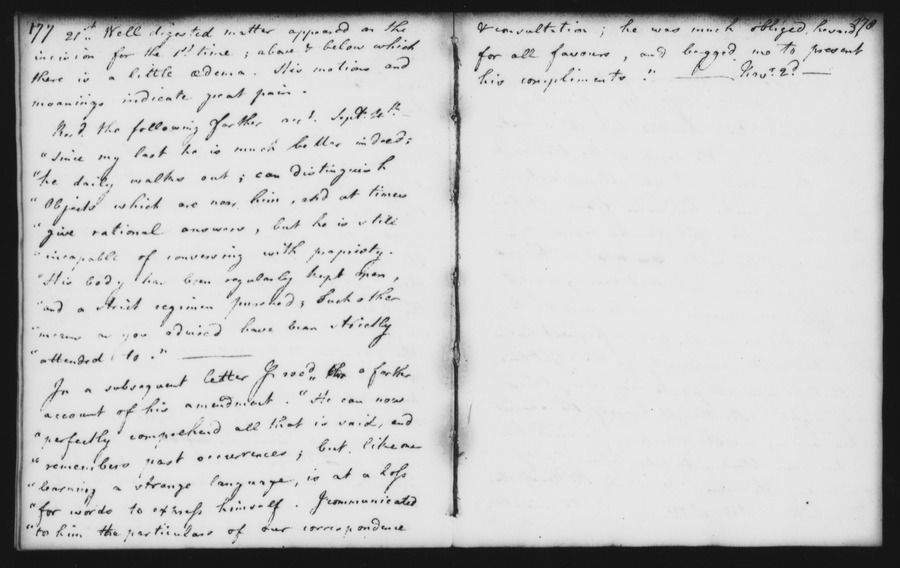 177
21st Well digested matter appeared on the
incision for the 1st time; above & below which
there is a little œdema. His motions and
moanings indicate great pain.
Rec.d the following farther acct. Septr. 24th
"Since my last he is much better indeed;
"he daily walks out; can distinguish
"Objects which are near him, and at times
"give rational answers, but he is still
"incapable of conversing with propriety.
"His body has been regularly kept open,
"and a strict regimen pursued; Such other
"means as you advised have been strictly
"attended to."
In a subsequent letter I recd. a farther
account of his amendment. "He can now
"perfectly comprehend all that is said, and
"remembers past occurrences; but, like one
"learning a strange language, is at a loss
"for words to express himself. I communicated
"to him the particulars of our correspondence
178
& consultation; he was much obliged, he said,
for all favours, and begged me to present
his compliments." Novr. 2d